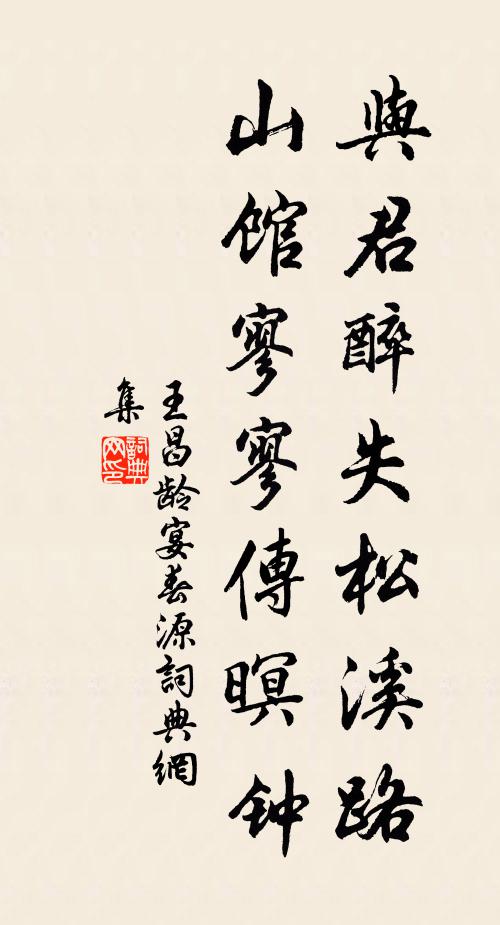 與君醉失松溪路
山馆寥寥傳暝钟
王昌龄宴春源詞典網
集
詞典网印